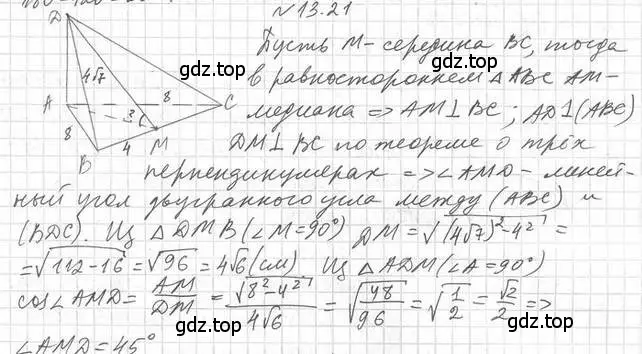 N 13.21
D
Пусть M - середина BC, тогда
gdz.top
4√7
в равностороннем △ABC AM-
A
8
C
медиана => AM⊥BC; AD⊥(ABC)
8
M
4
B
DM⊥BC по теореме о трёх
перпендикулярах => ∠AMD - линей-
ный угол двугранного угла между (ABC) и
(BDC). Из △DMB (∠M=90°) DM = √((4√7)²-4²) =
= √(112-16) = √96 = 4√6 (см). Из △ADM (∠A=90°)
cos∠AMD = AM/DM = √(8²-4²)/4√6 = √(48/96) = √(1/2) = √2/2 =>
∠AMD = 45°
gdz.top
gdz.top
gdz.top
gdz.top
gdz.top